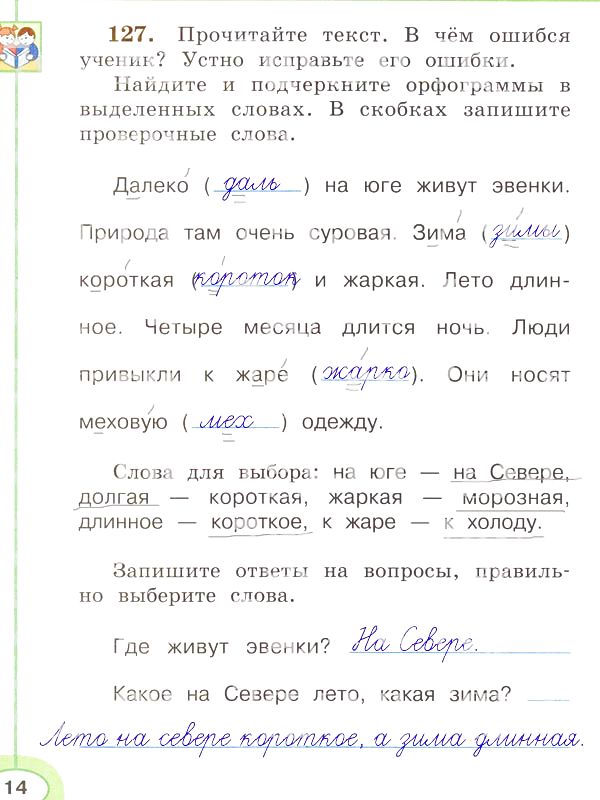 127. Прочитайте текст. В чём ошибся
ученик? Устно исправьте его ошибки.
Найдите и подчеркните орфограммы в
выделенных словах. В скобках запишите
проверочные слова.
Далеко́ (даль) на юге живут эвенки.
Природа там очень суровая. Зима́ (зи́мы)
коро́ткая (ко́роток) и жаркая. Лето длин-
ное. Четыре месяца длится ночь. Люди
привыкли к жаре́ (жа́рко). Они носят
мехову́ю (мех) одежду.
Слова для выбора: на юге — на Севере,
долгая — короткая, жаркая — морозная,
длинное — короткое, к жаре — к холоду.
Запишите ответы на вопросы, правиль-
но выберите слова.
Где живут эвенки? На Севере.
Какое на Севере лето, какая зима?
Лето на севере короткое, а зима длинная.
14